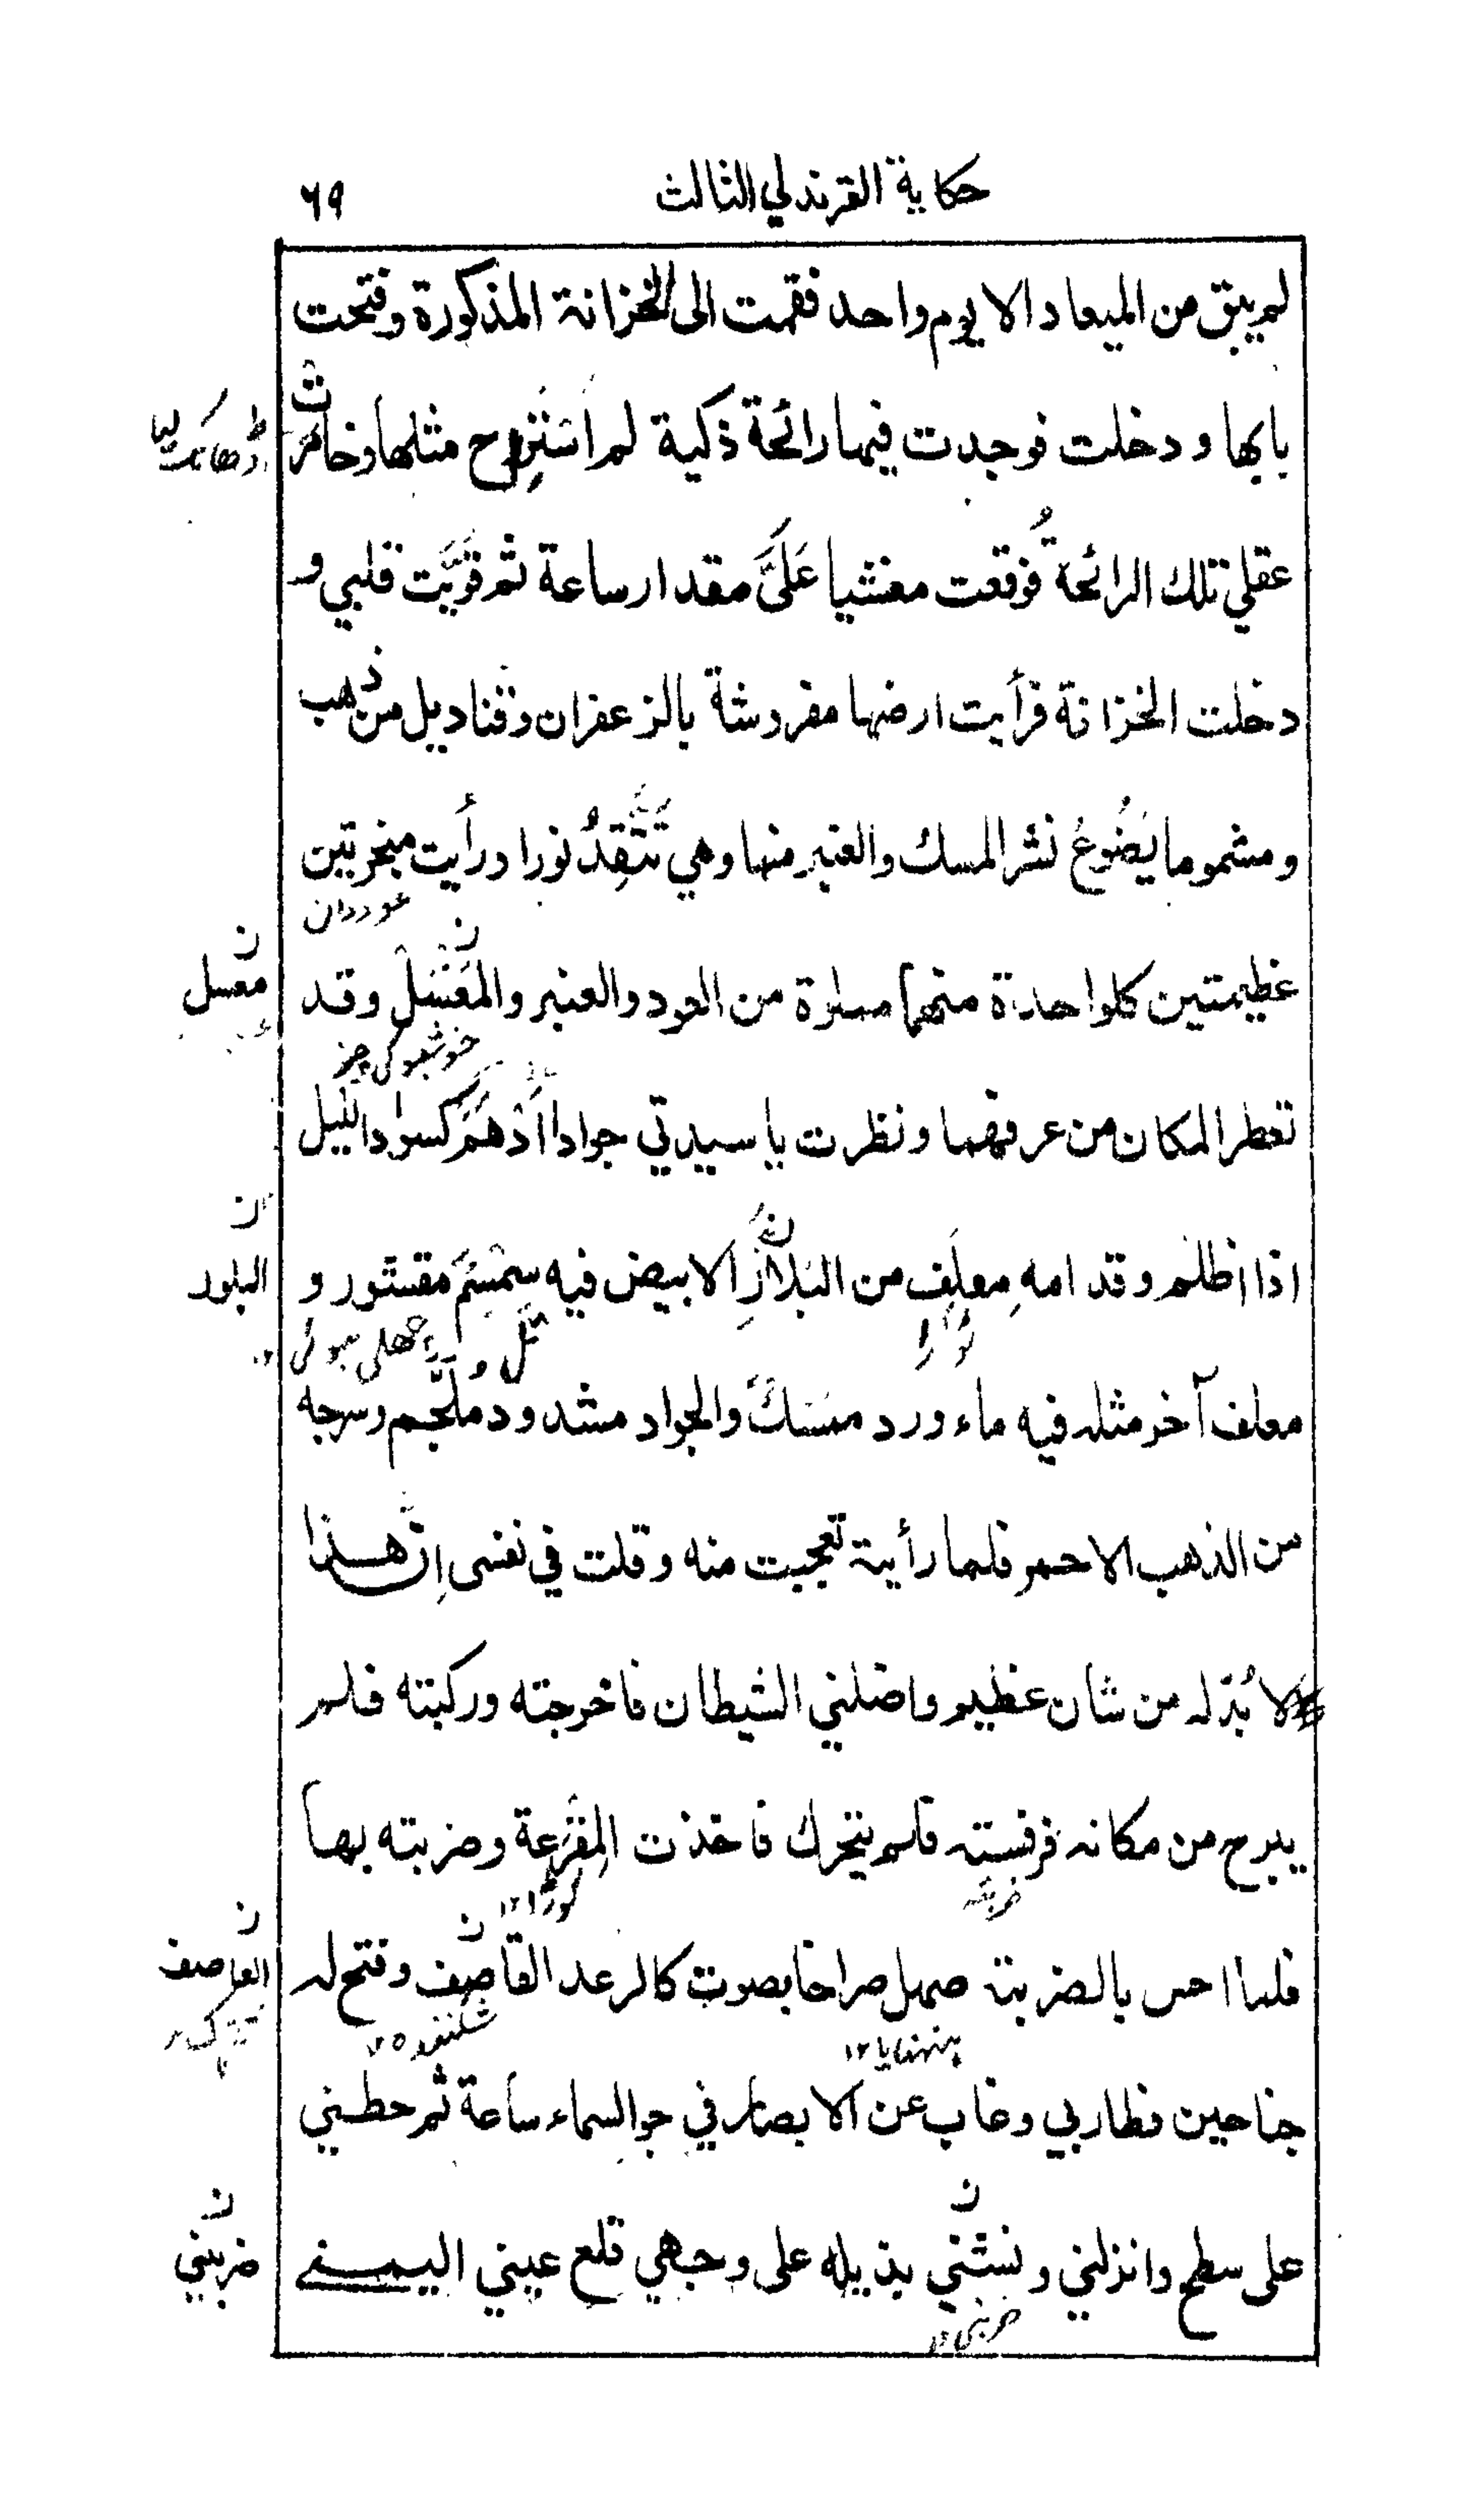 حكاية القرندلي الثالث ٦٩
لم يبق من الميعاد الا يوم واحد فقمت الى الخزانة المذكورة وفتحت
بابها ودخلت فوجدت فيها رائحة ذكية لم اَسْتَرِوح مثلها وخامرت
عقلي تلك الرائحةُ فوقعت مغشيا عَلَيَّ مقدار ساعة ثم قوّيَت قلبي و
دخلت الخزانة فرأيت ارضها مفروشة بالزعفران وقناديل من ذهب
ومشموما يَضُوعُ نشر المسك والعنبر منها وهي تَتَّقِدُ نورا ورأيت مبخرتين
عوددان
عظيمتين كلواحدة منهما مملوة من العود والعنبر والمُعَسَّلْ وقد
ن معسل
خوشبو كي چيز
تعطر المكان من عرفهما ونظرت يا سيدتي جوادا اَدْهَمَ كسواد اللّيل
اذا اظلم وقدامه مِعلَف من البَلاَّرِ الابيض فيه سِمْسِمٌ مقشور و
ن البلور
معلف آخر مثله فيه ماء ورد ممسَك والجواد مشدود مُلَجَّم وسرجه
من الذهب الاحمر فلما رأيته تعجبت منه وقلت في نفسي اِنّ هذا
لا بُدّ له من شان عظيم واضلني الشيطان فاخرجته وركبته فلم
يبرح من مكانه فرفسته فلم يتحرك فاخذت المِقْرَعة وضربته بها
فلما احس بالضربة صهل صراخا بصوت كالرعد القاصِف وفتح له
ن العاصف
شكننده
جناحين فطار بي وغاب عن الابصار في جو السماء ساعة ثم حطني
على سطح وانزلني ونشّني بذيله على وجهي قلع عيني اليمنى
ن ضربني